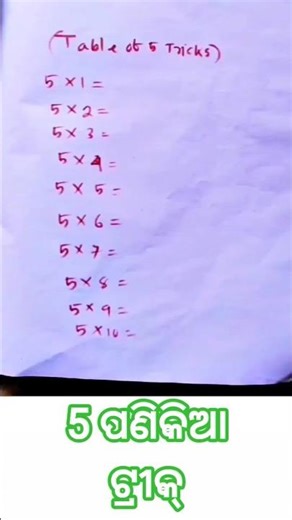 (Table of 5 Tricks)
5 × 1 =
5 × 2 =
5 × 3 =
5 × 4 =
5 × 5 =
5 × 6 =
5 × 7 =
5 × 8 =
5 × 9 =
5 × 10 =
5 ପଣିକିଆ
ଟ୍ରୀକ୍